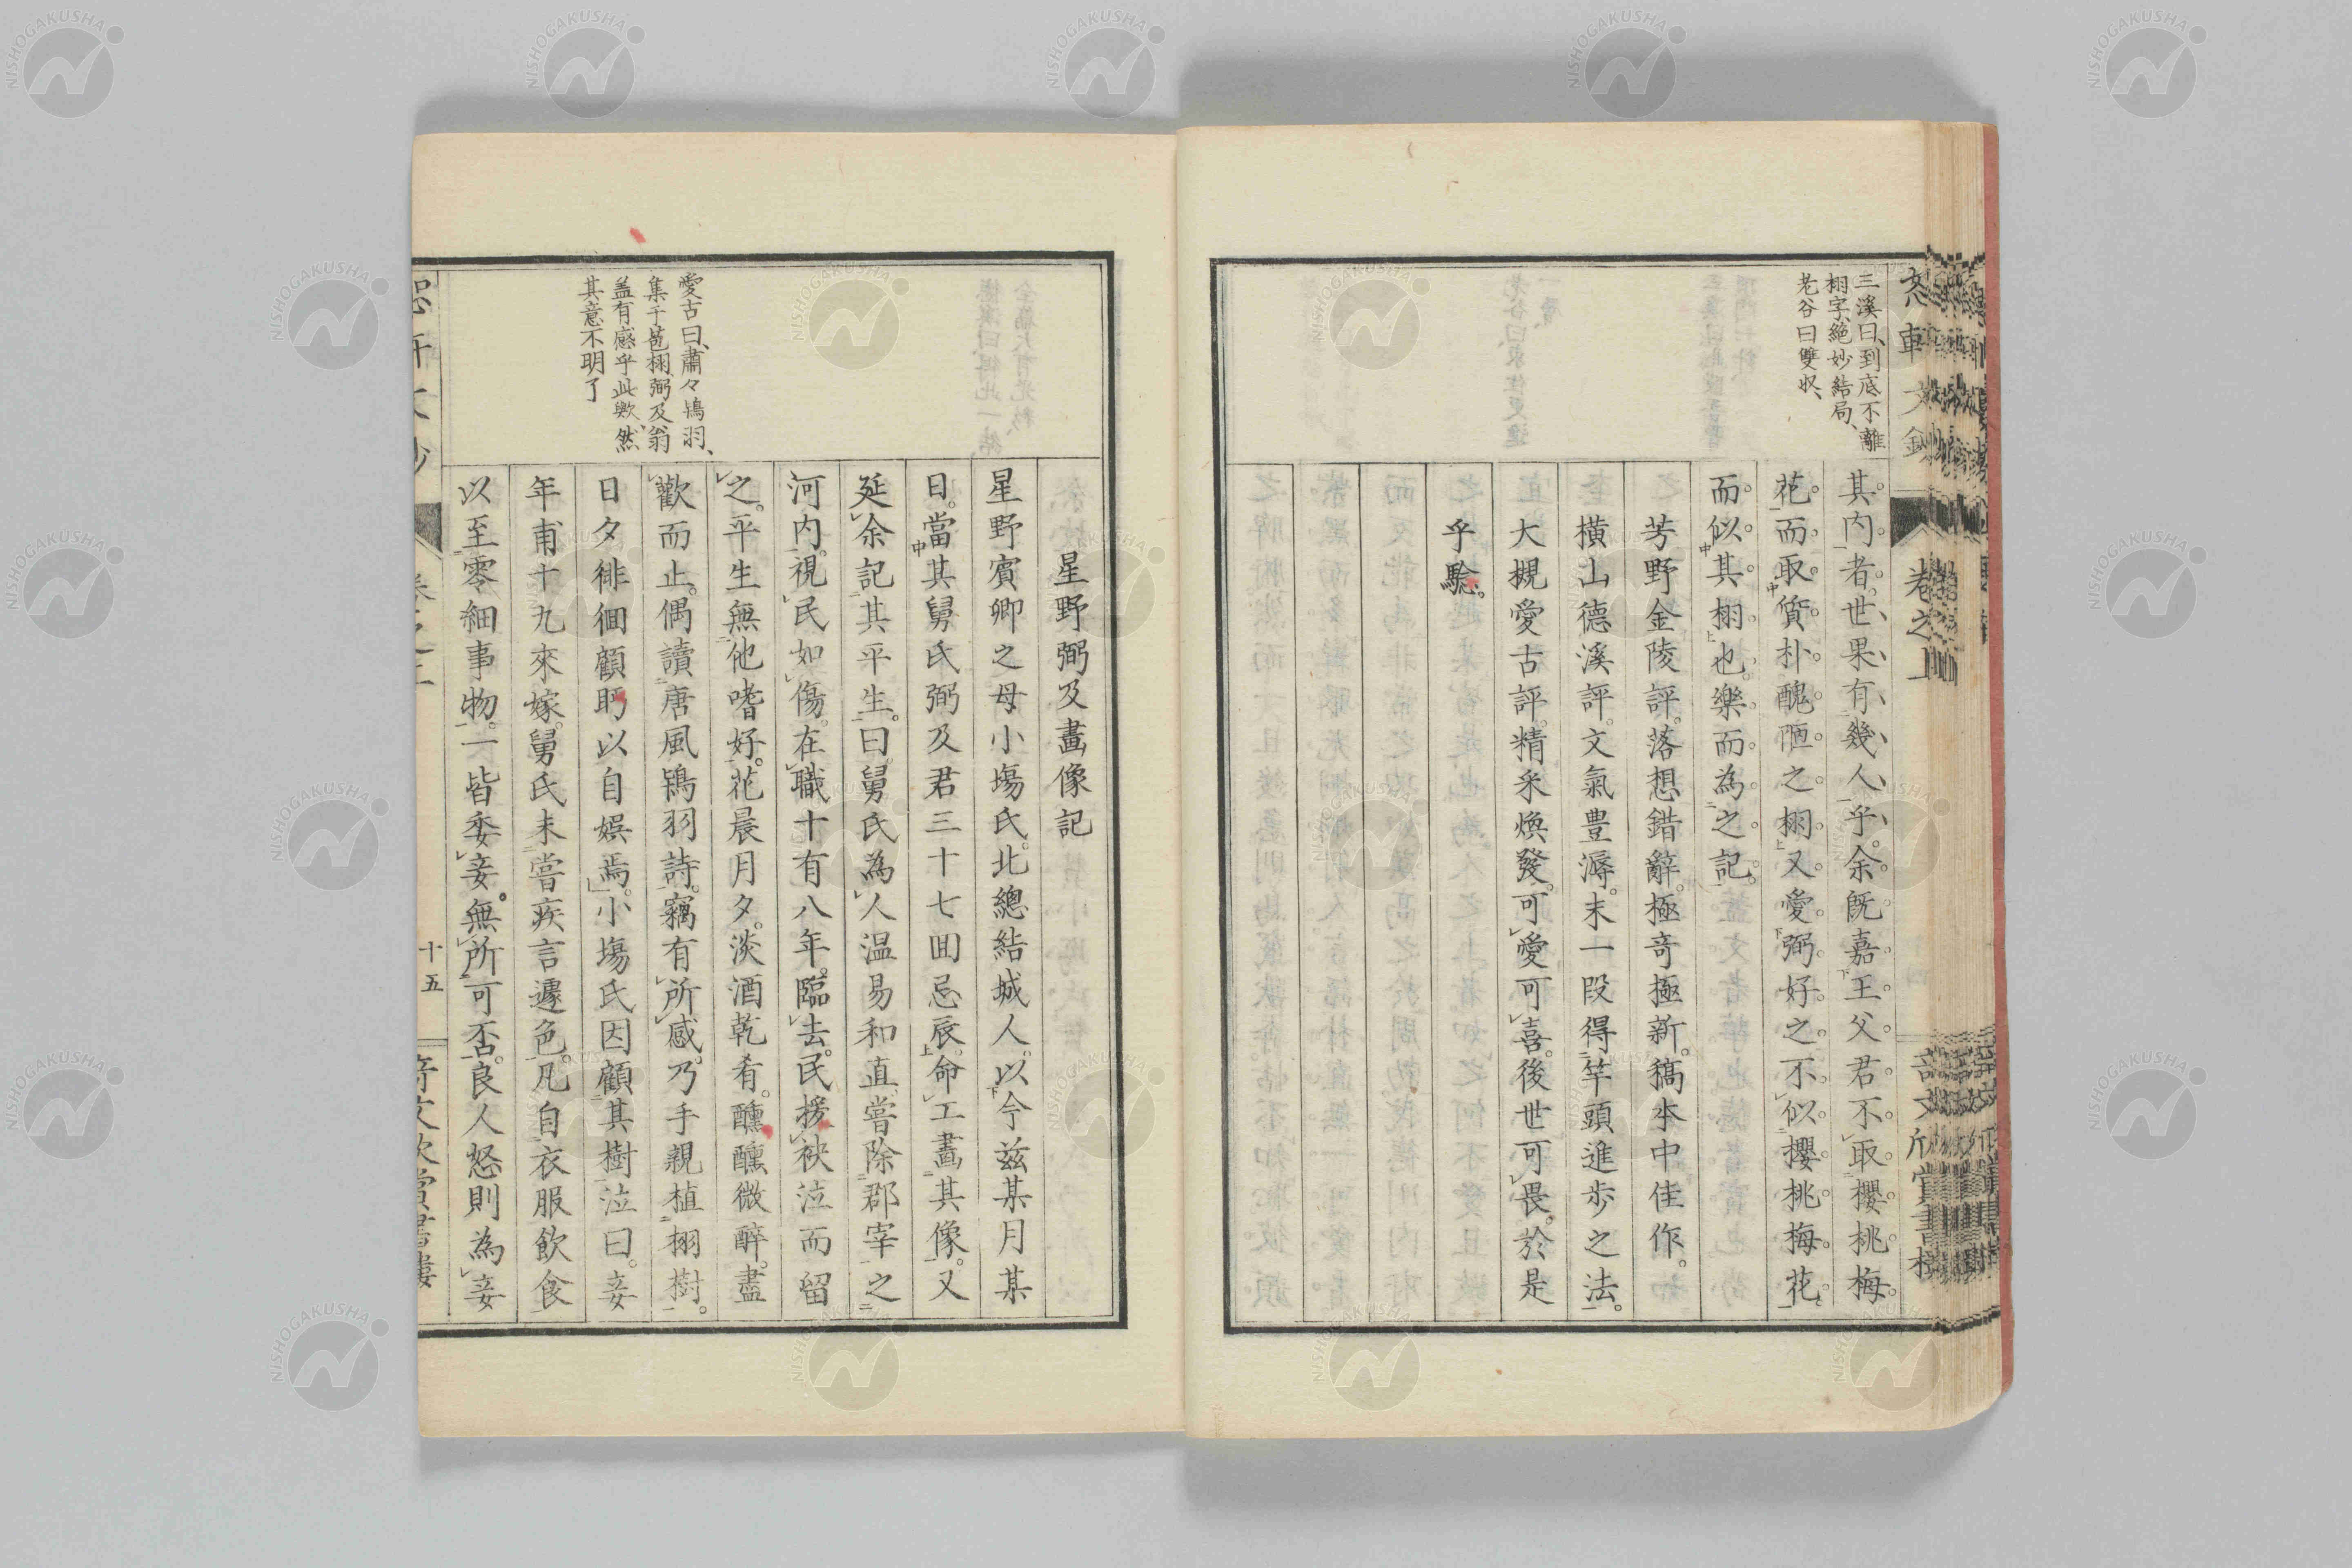 三溪曰、到底不離
栩字、絶妙結局、
老谷曰雙收、
其内者。世果有幾人乎。余既嘉王父君不取櫻桃梅
花而取質朴醜陋之栩又愛弼好之不似櫻桃梅花
而似其栩也。樂而為之記。
芳野金陵評。落想錯辭。極奇極新。稿本中佳作。
橫山德溪評。文氣豊溽。末一段得竿頭進步之法。
大槻愛古評。精采煥發。可愛可喜。後世可畏。於是
乎驗。
卷之上
星野弼及畫像記
星野賓卿之母小塲氏。北總結城人。以今兹某月某
日。當其舅氏弼及君三十七囘忌辰。命工畫其像。又
延余記其平生。曰。舅氏為人温易和直。嘗除郡宰之
河内。視民如傷。在職十有八年。臨去。民援袂泣而留
之。平生無他嗜好。花晨月夕。淡酒乾肴。醺醺微醉。盡
歡而止。偶讀唐風鴇羽詩。竊有所感。乃手親植栩樹。
日夕徘徊顧眄以自娛焉。小塲氏因顧其樹泣曰。妾
年甫十九來嫁。舅氏未嘗疾言遽色。凡自衣服飲食
以至零細事物。一皆委妾。無所可否。良人怒則為妾
愛古曰、肅々鴇羽、
集于苞栩、弼及翁
盖有感乎此歟、然
其意不明了
十五